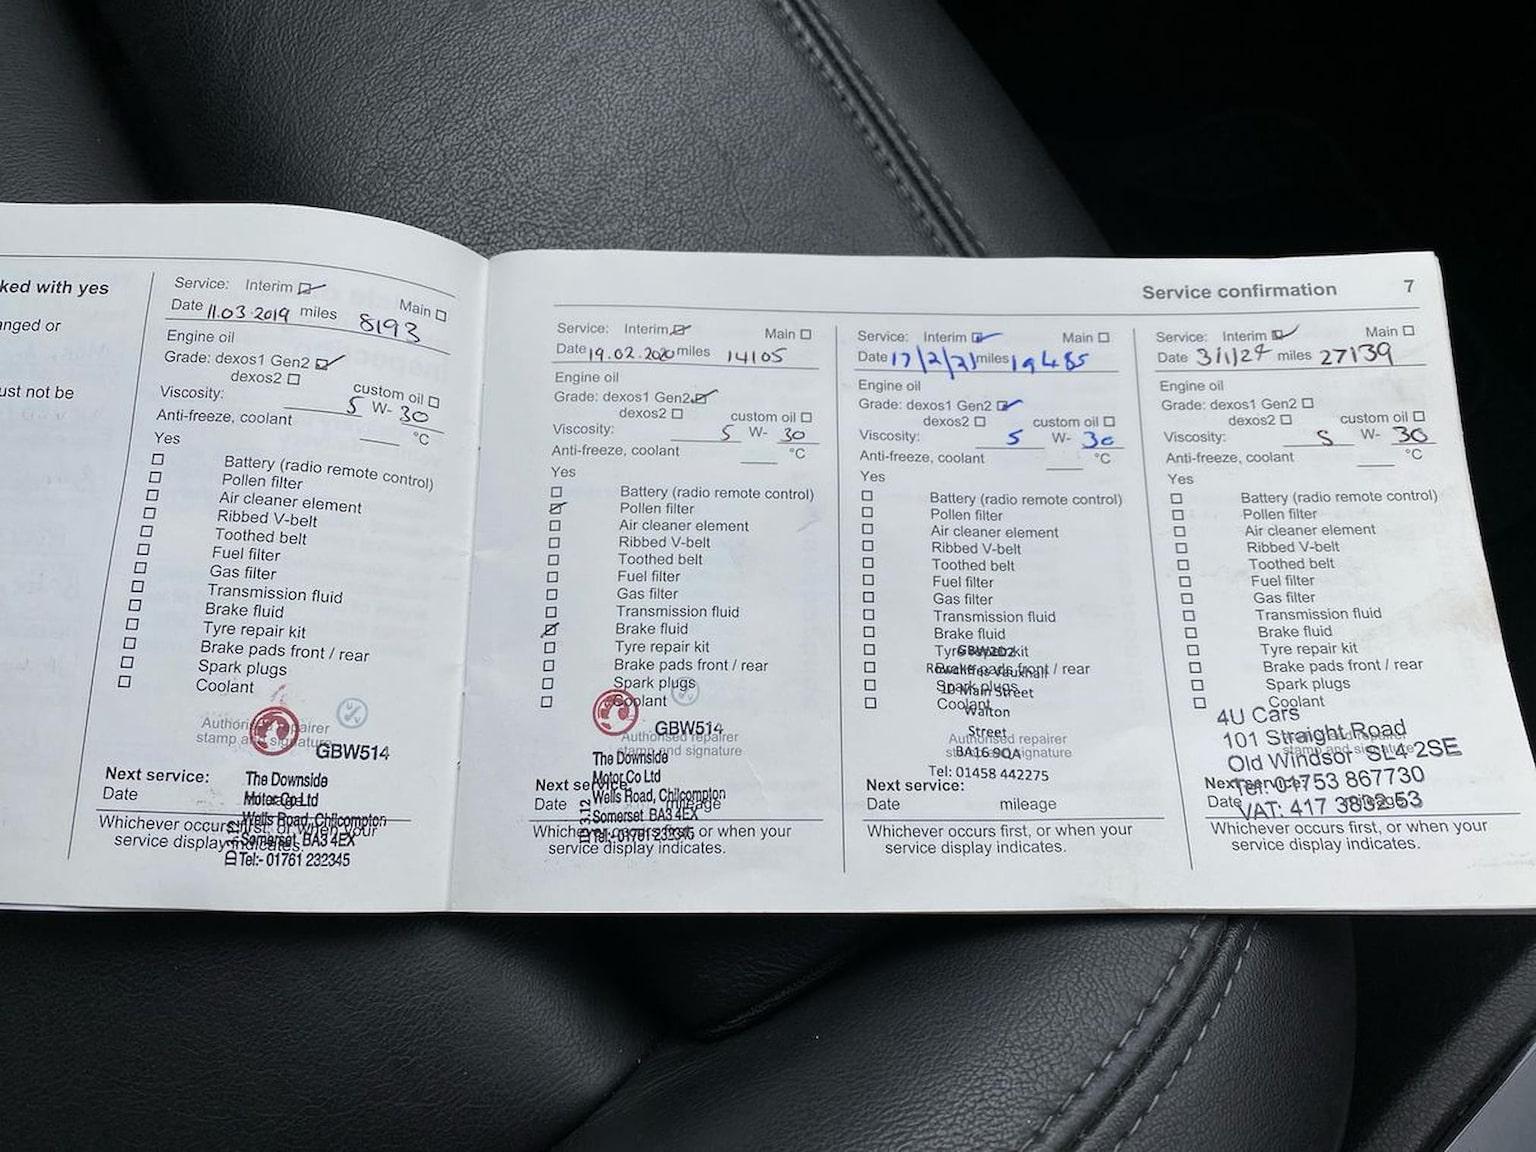 ked with yes
anged or
ust not be
Service: Interim Main
Date 11.03.2019 miles 8193
Engine oil
Grade: dexos1 Gen2
dexos2
custom oil
Viscosity: 5 W- 30
Anti-freeze, coolant °C
Yes
Battery (radio remote control)
Pollen filter
Air cleaner element
Ribbed V-belt
Toothed belt
Fuel filter
Gas filter
Transmission fluid
Brake fluid
Tyre repair kit
Brake pads front / rear
Spark plugs
Coolant
Authorised repairer
stamp and signature
GBW514
Next service:
Date
The Downside
Motor Co Ltd
Wells Road, Chilcompton
Somerset BA3 4EX
Tel:- 01761 232345
Whichever occurs first, or when your
service display indicates.
Service confirmation 7
Service: Interim Main
Date 19.02.2020 miles 14105
Engine oil
Grade: dexos1 Gen2
dexos2 custom oil
Viscosity: 5 W- 30
Anti-freeze, coolant °C
Yes
Battery (radio remote control)
Pollen filter
Air cleaner element
Ribbed V-belt
Toothed belt
Fuel filter
Gas filter
Transmission fluid
Brake fluid
Tyre repair kit
Brake pads front / rear
Spark plugs
Coolant
GBW514
Authorised repairer
stamp and signature
The Downside
Motor Co Ltd
Wells Road, Chilcompton
Somerset BA3 4EX
Tel:- 01761 232345
Next service:
Date mileage
Whichever occurs first, or when your
service display indicates.
Service: Interim Main
Date 17/2/21 miles 19485
Engine oil
Grade: dexos1 Gen2
dexos2 custom oil
Viscosity: 5 W- 30
Anti-freeze, coolant °C
Yes
Battery (radio remote control)
Pollen filter
Air cleaner element
Ribbed V-belt
Toothed belt
Fuel filter
Gas filter
Transmission fluid
Brake fluid
Tyre repair kit
Brake pads front / rear
Spark plugs
Coolant
Vauxhall
10 Main Street
Walton
Street
BA16 9QA
Tel: 01458 442275
Authorised repairer
stamp and signature
Next service:
Date mileage
Whichever occurs first, or when your
service display indicates.
Service: Interim Main
Date 3/1/24 miles 27139
Engine oil
Grade: dexos1 Gen2
dexos2 custom oil
Viscosity: 5 W- 30
Anti-freeze, coolant °C
Yes
Battery (radio remote control)
Pollen filter
Air cleaner element
Ribbed V-belt
Toothed belt
Fuel filter
Gas filter
Transmission fluid
Brake fluid
Tyre repair kit
Brake pads front / rear
Spark plugs
Coolant
4U Cars
101 Straight Road
Old Windsor SL4 2SE
Tel: 01753 867730
VAT: 417 3832 53
stamp and signature
Next service:
Date
Whichever occurs first, or when your
service display indicates.